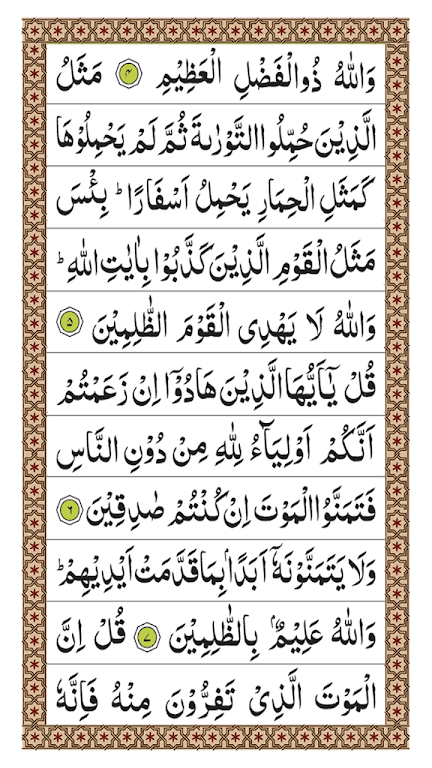 وَاللّٰهُ ذُو الْفَضْلِ الْعَظِيْمِ ۴ مَثَلُ
الَّذِيْنَ حُمِّلُوا التَّوْرٰىةَ ثُمَّ لَمْ يَحْمِلُوْهَا
كَمَثَلِ الْحِمَارِ يَحْمِلُ اَسْفَارًا ؕ بِئْسَ
مَثَلُ الْقَوْمِ الَّذِيْنَ كَذَّبُوْا بِاٰيٰتِ اللّٰهِ ؕ
وَاللّٰهُ لَا يَهْدِى الْقَوْمَ الظّٰلِمِيْنَ ۵
قُلْ يٰۤاَيُّهَا الَّذِيْنَ هَادُوْۤا اِنْ زَعَمْتُمْ
اَنَّكُمْ اَوْلِيَآءُ لِلّٰهِ مِنْ دُوْنِ النَّاسِ
فَتَمَنَّوُا الْمَوْتَ اِنْ كُنْتُمْ صٰدِقِيْنَ ۶
وَلَا يَتَمَنَّوْنَهٗۤ اَبَدًۢا بِمَا قَدَّمَتْ اَيْدِيْهِمْ ؕ
وَاللّٰهُ عَلِيْمٌۢ بِالظّٰلِمِيْنَ ۷ قُلْ اِنَّ
الْمَوْتَ الَّذِىْ تَفِرُّوْنَ مِنْهُ فَاِنَّهٗ